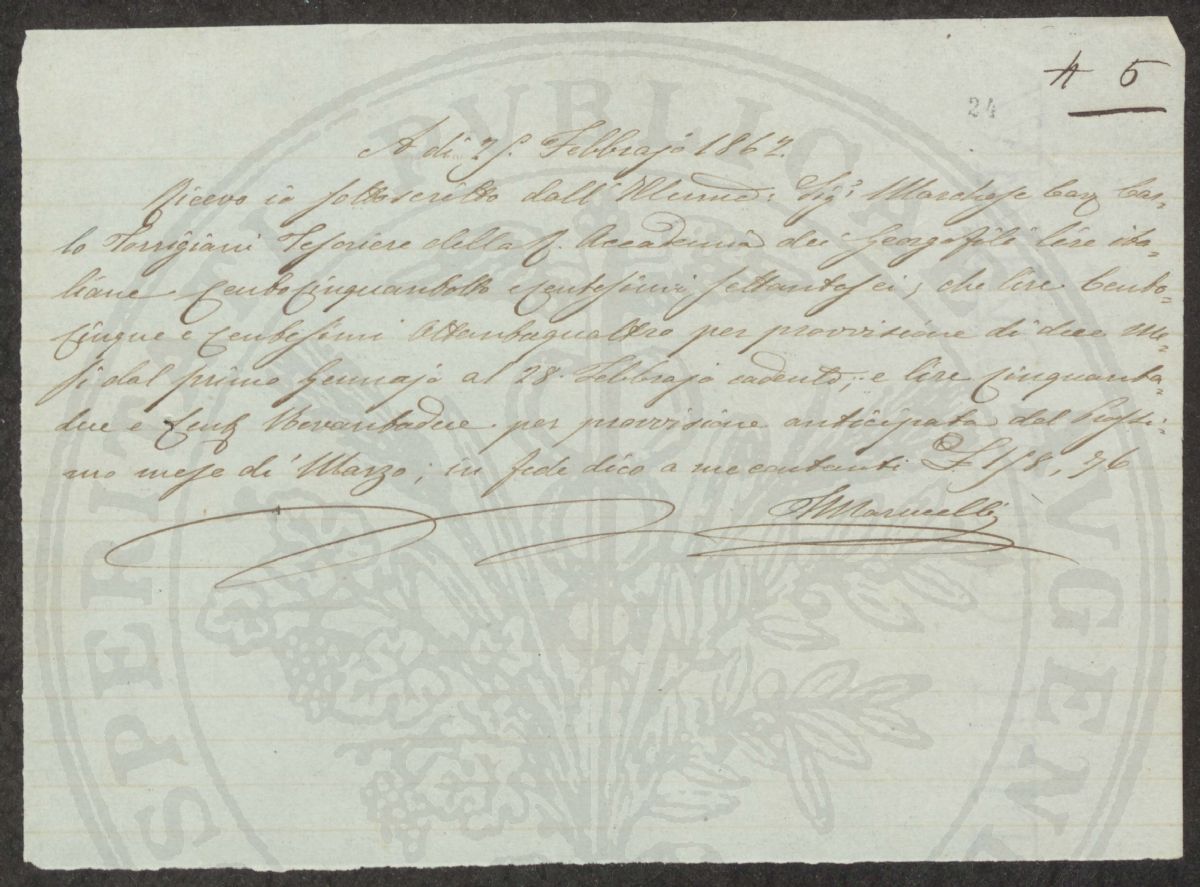 4 5
24
A dì 25. Febbrajo 1862.
Ricevo io sottoscritto dall' Illumo: Sigr. Marchese Cav Car-
lo Torrigiani Tesoriere della R. Accademia dei Georgofili lire ita-
liane CentoCinquantotto e centesimi settantasei, che lire Cento-
cinque e Centesimi Ottantaquattro per provvisione di due me-
si dal primo Gennajo al 28. Febbrajo cadente; e lire cinquanta-
due e Cent Novantadue per provvisione anticipata del Prossi-
mo mese di Marzo; in fede dico a me contanti £ 158,76
Marucelli
PROSPERITATI PVBLICAE AVGENDAE